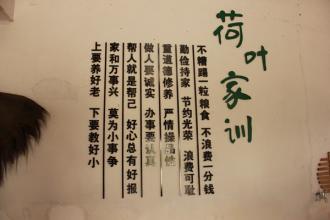 荷叶家训
不糟蹋一粒粮食 不浪费一分钱
勤俭持家 节约光荣 浪费可耻
重道德修养 严情操
做人要诚实 办事要认真
帮人就是帮己 好心总有好报
家和万事兴 莫为小事争
上要养好老 下要教好小